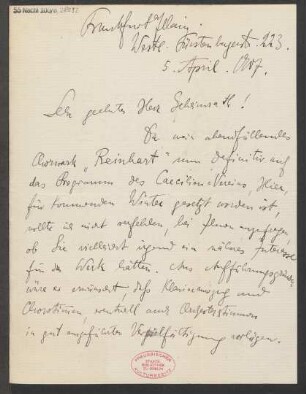 Frankfurt a/Main.
Westl. Fürstenbergerstr. 223.
5. April. 1907.
Sehr geehrter Herr Geheimrath!
Da mein abendfüllendes
Chorwerk „Reinhart" nun definitiv auf
das Programm des Caecilienvereins, Hier,
für kommenden Winter gesetzt worden ist,
wollte ich nicht verfehlen, bei Ihnen anzufragen,
ob Sie vielleicht irgend ein näheres Interesse
für das Werk hätten. Aus Aufführungsgründen
wäre es erwünscht, daß Klavierauszug und
Chorstimmen, eventuell auch Orchesterstimmen
in gut ausgeführter Vervielfältigung vorlägen.
STAATS-
BIBLIOTHEK
ZU BERLIN
KULTURBESITZ